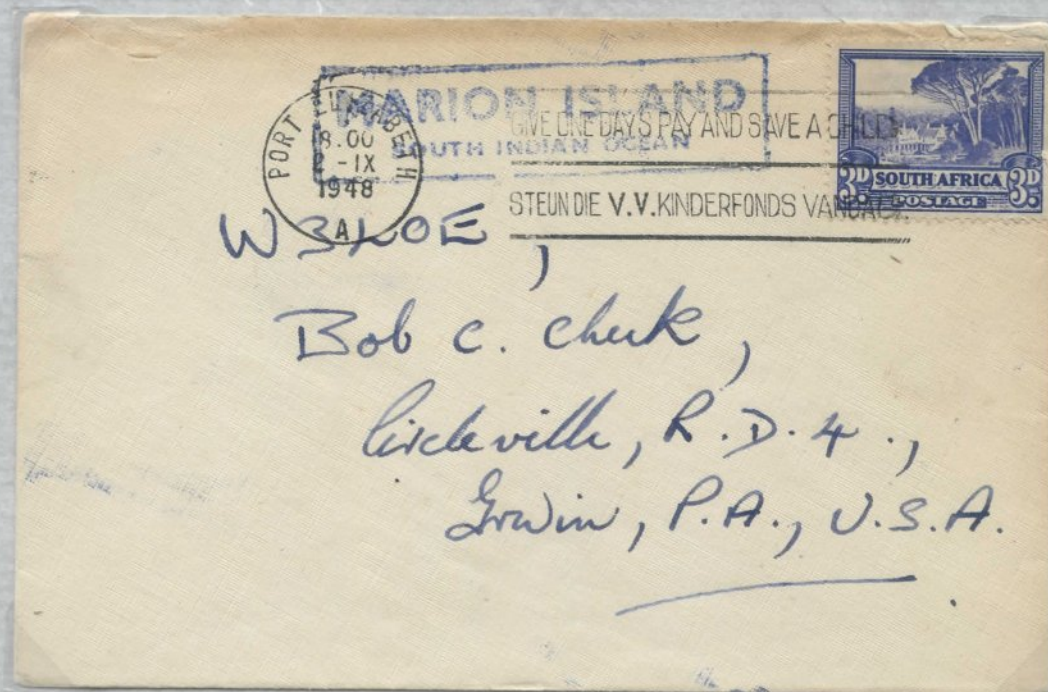 MARION ISLAND
SOUTH INDIAN OCEAN
PORT ELIZABETH
18.00
2 -IX
1948
A
GIVE ONE DAYS PAY AND SAVE A CHILD
STEUN DIE V.V. KINDERFONDS VANDAG.
3D SOUTH AFRICA 3D
POSTAGE
Bob C. Cheek,
Circleville, R.D. 4.,
Irwin, P.A., U.S.A.